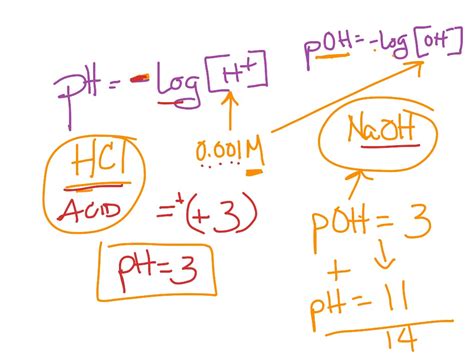 pH = -log [H+]
pOH = -log [OH-]
HCl
ACID
0.001M
NaOH
=+(+3)
pH=3
pOH = 3
+
pH = 11
14